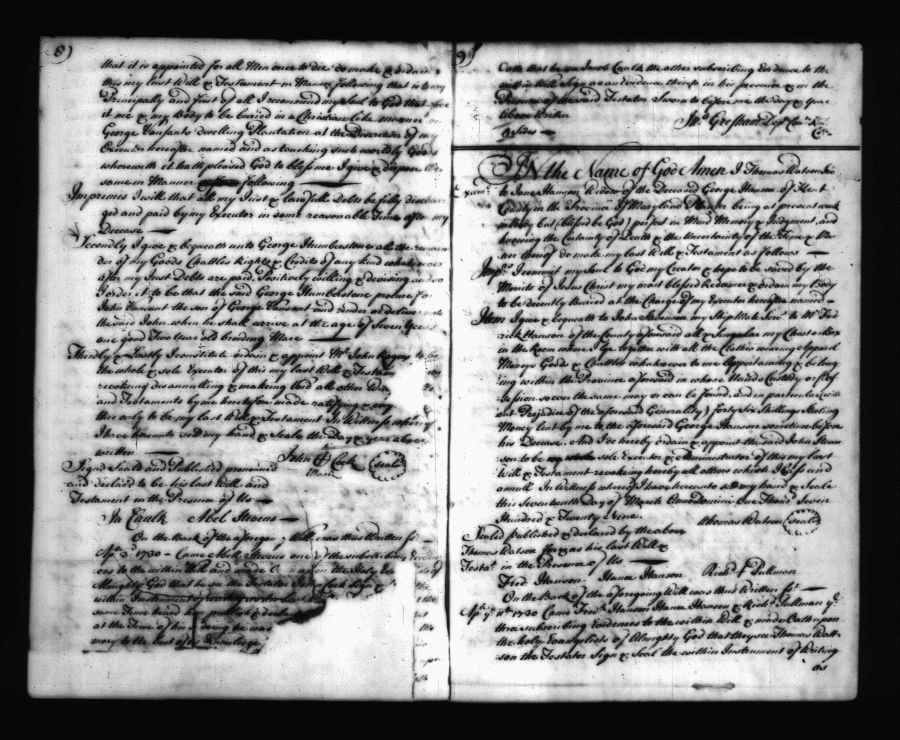 8)
that it is appointed for all Men once to die do make & ordain
this my last Will & Testament in Manner following that is to say
Principally and first of all I recommend my Soul to God that gave
it me & my Body to be buried in a Christian like manner on
George Vansants dwelling Plantation at the Discretion of my
Executor hereafter named and as touching such worldly Goods
wherewith it hath pleased God to bless me I give & dispose the
same in Manner following
Impremis I will that all my Just & lawfull Debts be fully dischar
ged and paid by my Executor in some reasonable Time after my
Decease
Secondly I give & bequeath unto George Humberstone all the remain
der of my Goods Chattles Rights & Credits of any kind whatsoever
after my Just Debts are paid Positively willing & devising and
I order it to be that the said George Humberstone procure for
John Vansant the son of George Vansant and render or deliver unto
the said John when he shall arrive at the age of Seven Years
one good Two Year old breeding Mare
Thirdly & Lastly I constitute ordain & appoint Mr. John Rogers to be
the whole & sole Executor of this my last Will & Testam
revoking disannulling & making Void all other
and Testaments by me heretofore made ratifying
this only to be my last Will & Testament In Witness whereof
I have hereunto set my hand & Seale the Day & year above
written
John Cock Seale
Signd Seald and Published pronounced
and declared to be his last Will and
Testament in the Presence of Us
Ja Caulk Abel Stevens
On the Back of the aforegoing Will was thus Written
Apr. 1730 Came Abel Stevens one of the subscribing
ces to the within Will and made O upon the Holy
Almighty God that he saw the Testator Sign
within Instrument of writing
same Time heard him publish & declare
at the Time of his doing he was
mory to the best of his Knowledge
9)
Oath that he saw Jacob Caulk the other subscribing Evidence to the
within Will sign as an evidence thereto in his presence & in the
Presence of the said Testator Sworn to before me the day & year
above Written
Jno. Gresham Depy. Comy. Kent
Coty.
IN the Name of God Amen I Thomas Watson
to Jane Hanson Widow of the Deceased George Hanson of Kent
County in the Province of Maryland being at present weak
in Body but (blessed be God) perfect in Mind Memory & Judgment, and
knowing the Certainty of Death & the Uncertainty of the Time &
ner thereof do make my last Will & Testament as follows
Imps. I commit my Soul to God my Creator & hope to be saved by the
Merits of Jesus Christ my most blessed Redeemer & ordain my Body
to be decently buried at the Charge of my Executor hereafter named
Item I give & bequeath to John Steenson my Ship Mate Servt. to Mr. Fred
rick Hanson of the County aforesaid all & singular my Chest or Box
in the Room where I lye together with all the Clothes wearing Apparel
Moneys Goods & Chattles whatsoever to me Appertaining & belong
ing within the Province aforesaid in whose Hands Custody or Pos
session soever the same may or can be found, and in particular (with
out Prejudice of the aforesaid Generality) forty six Shillings Sterling
Money lent by me to the aforesaid George Hanson sometime before
his Decease. And I do hereby ordain & appoint the said John Steen
son to be sole Executor & Administrator of this my last
Will & Testament revoking hereby all others which I pass and
annull. In Witness whereof I have hereunto set my hand & Seale
this Seventeenth Day of March Annodomini One Thousd. Seven
Hundred & Twenty Nine.
thomas Watson seale
Sealed published & declared by the above
Thomas Watson for & as his last Will &
Testat. in the Presence of Us
Fred. Hanson Hance Hanson Richd. Pullman
On the Back of the aforegoing Will was thus Written
Apr. ye 11th 1730 Came Fredk. Hanson Hance Hanson & Richd. Pullman ye
three subscribing Evidences to the within Will & made Oath upon
the holy Evangelists of Almighty God that they see Thomas Wat
son the Testator Sign & Seal the within Instrument of Writing
as